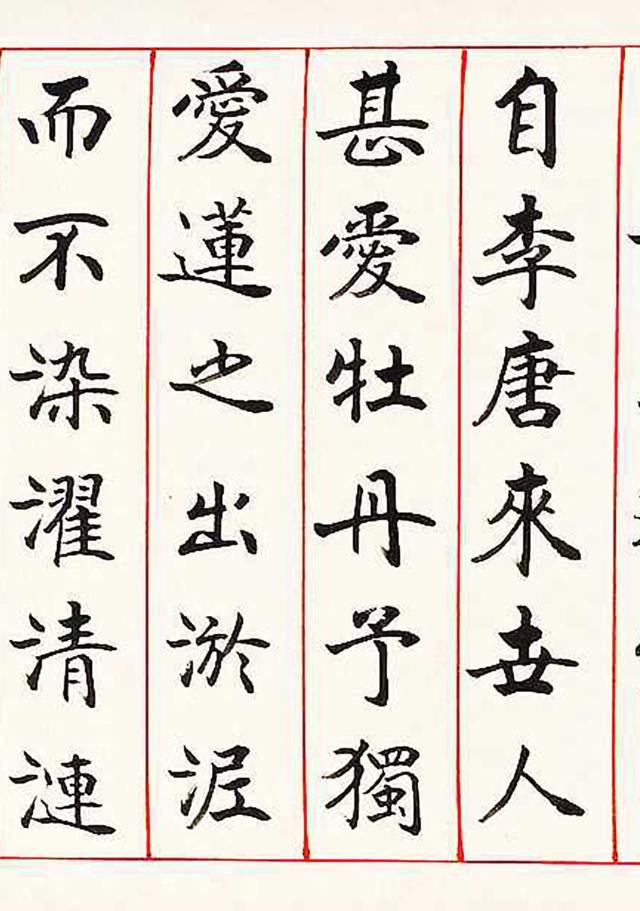 自李唐來世人
甚愛牡丹予獨
愛蓮之出淤泥
而不染濯清漣